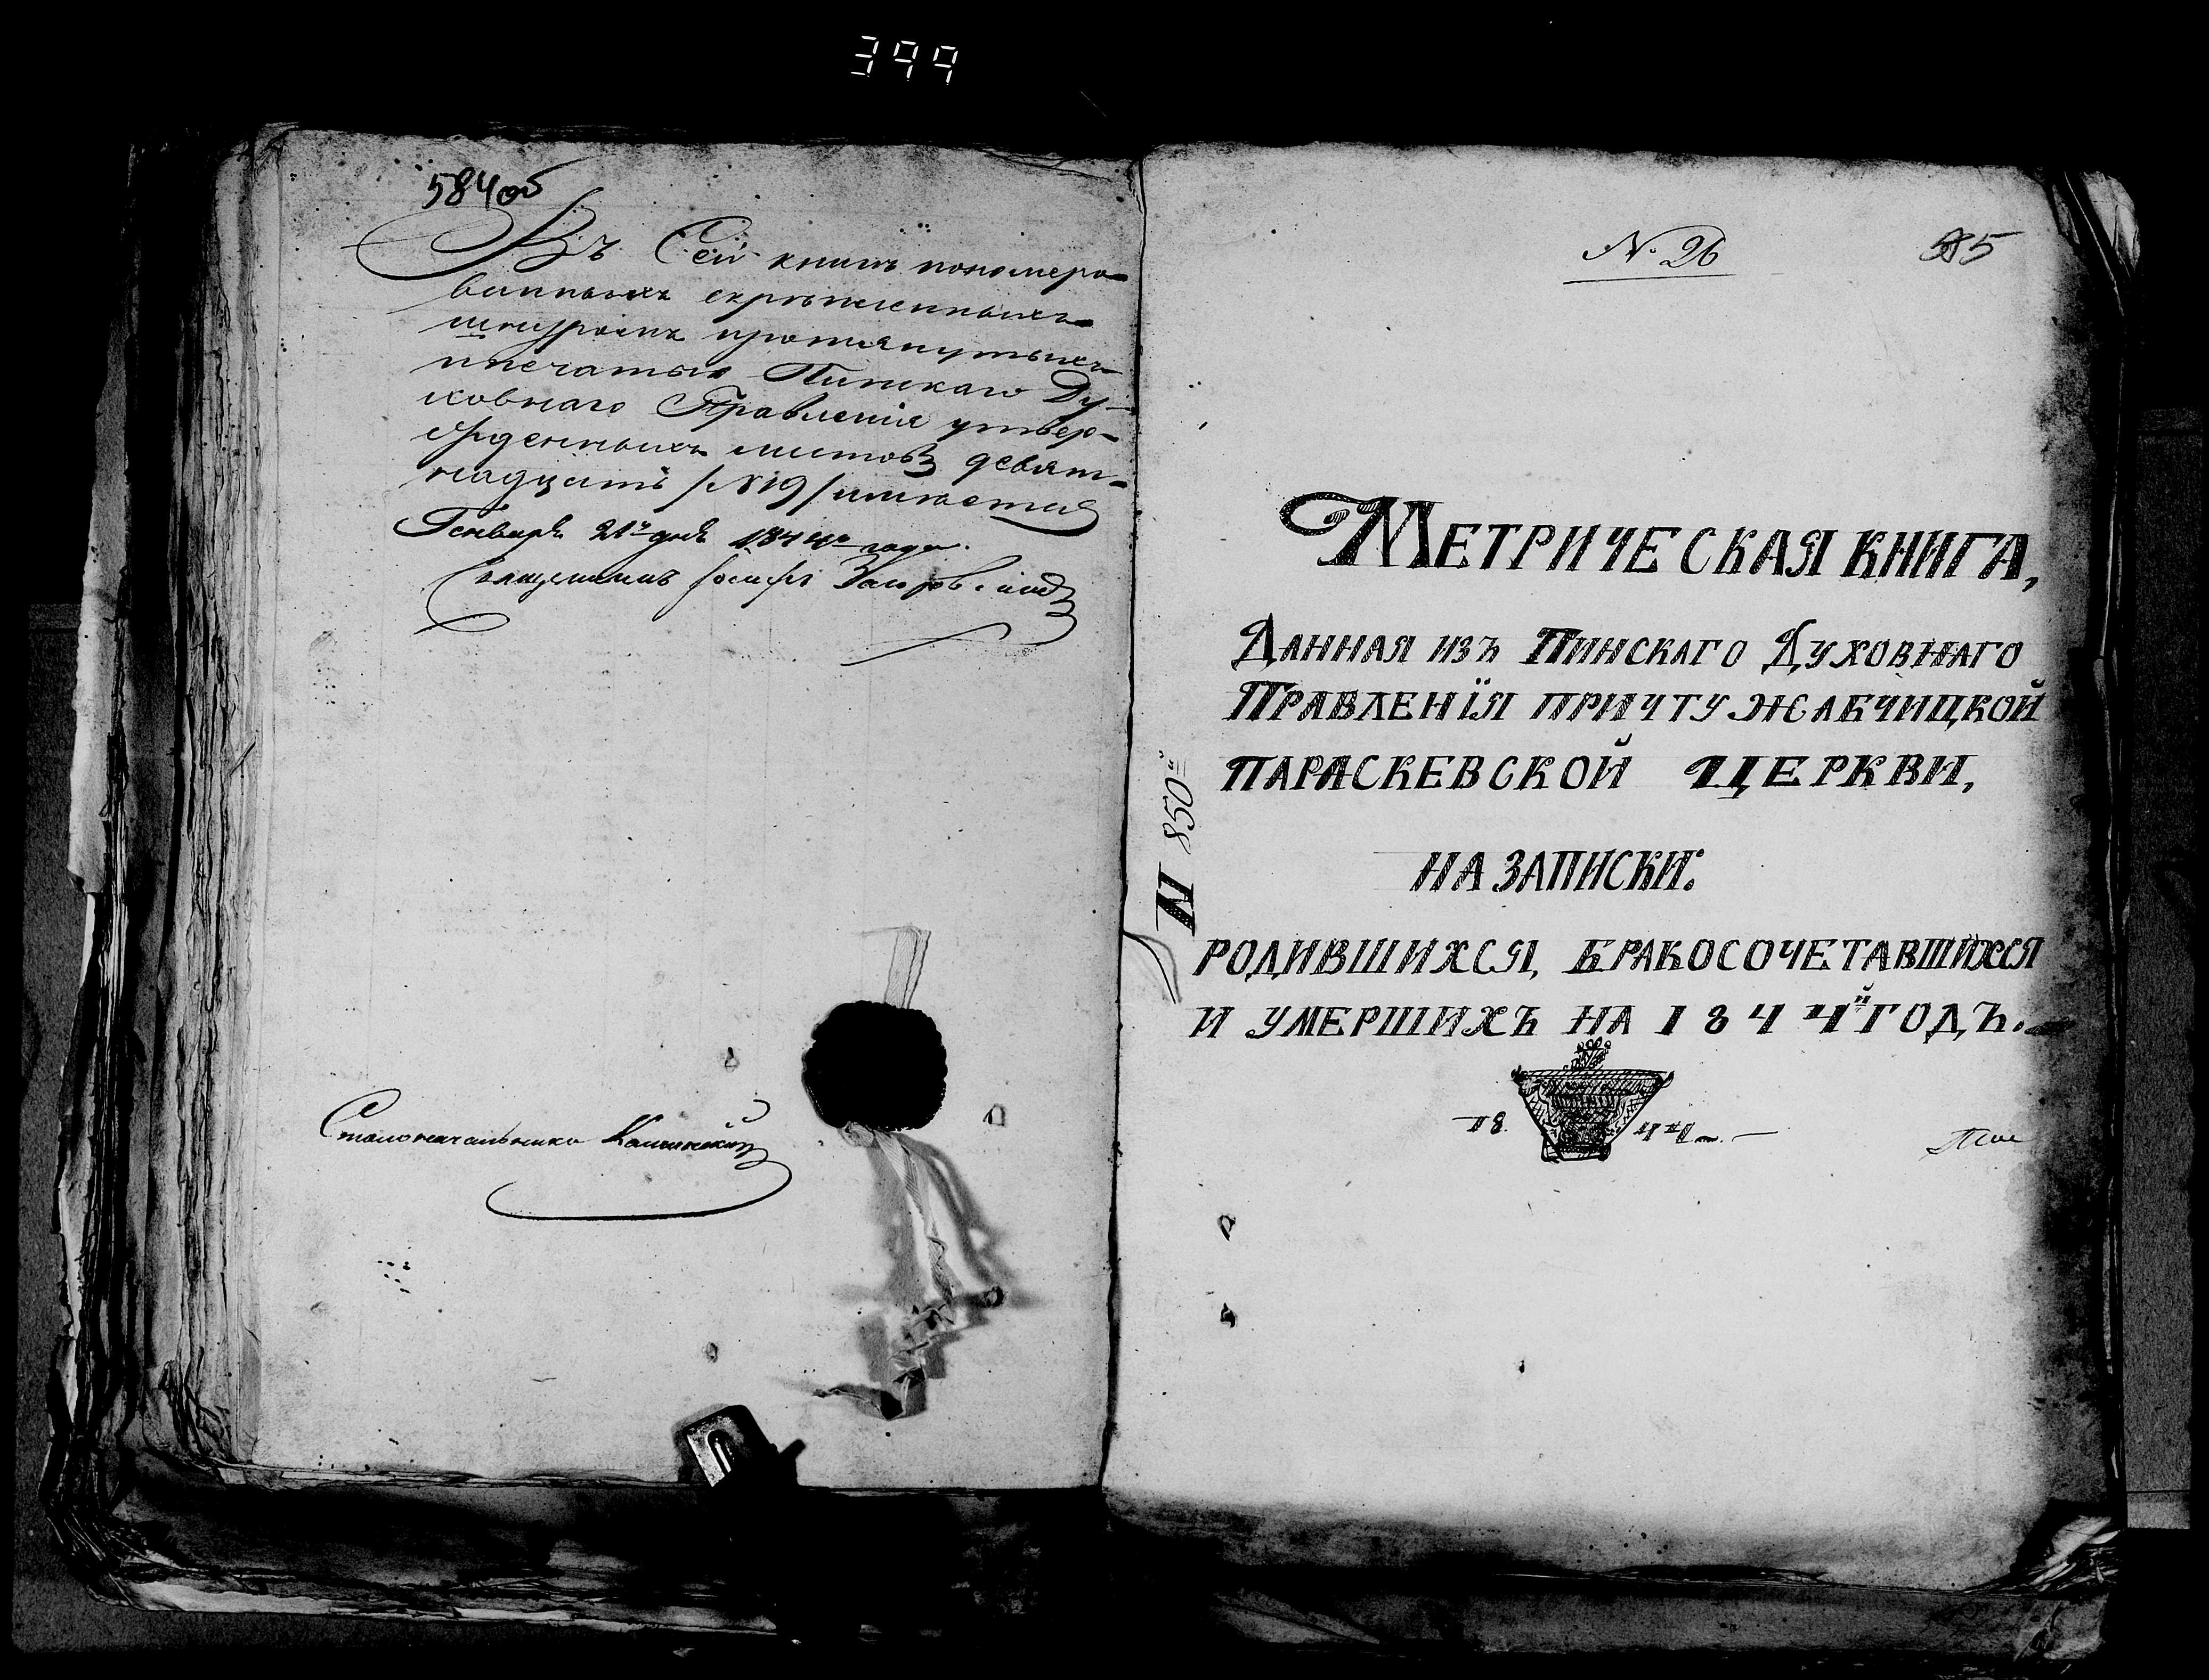 399
584об
Въ Сей книгѣ пономеро-
ванныхъ скрѣпленныхъ
шнуромъ протянутыхъ
и печатью Пинскаго Ду-
ховнаго Правленія утвер-
жденныхъ листовъ девят-
надцать /№19/ имѣется
Генваря 21го дня 1844го года.
Священникъ Іосифъ
Столоначальникъ
№ 26
585
МЕТРИЧЕСКАЯ КНИГА,
ДАННАЯ ИЗЪ ПИНСКАГО ДУХОВНАГО
ПРАВЛЕНІЯ ПРИЧТУ ЖАБЧИЦКОЙ
ПАРАСКЕВСКОЙ ЦЕРКВИ,
НА ЗАПИСКИ:
РОДИВШИХСЯ, БРАКОСОЧЕТАВШИХСЯ
И УМЕРШИХЪ НА 1844й ГОДЪ.
18 44
N 850й